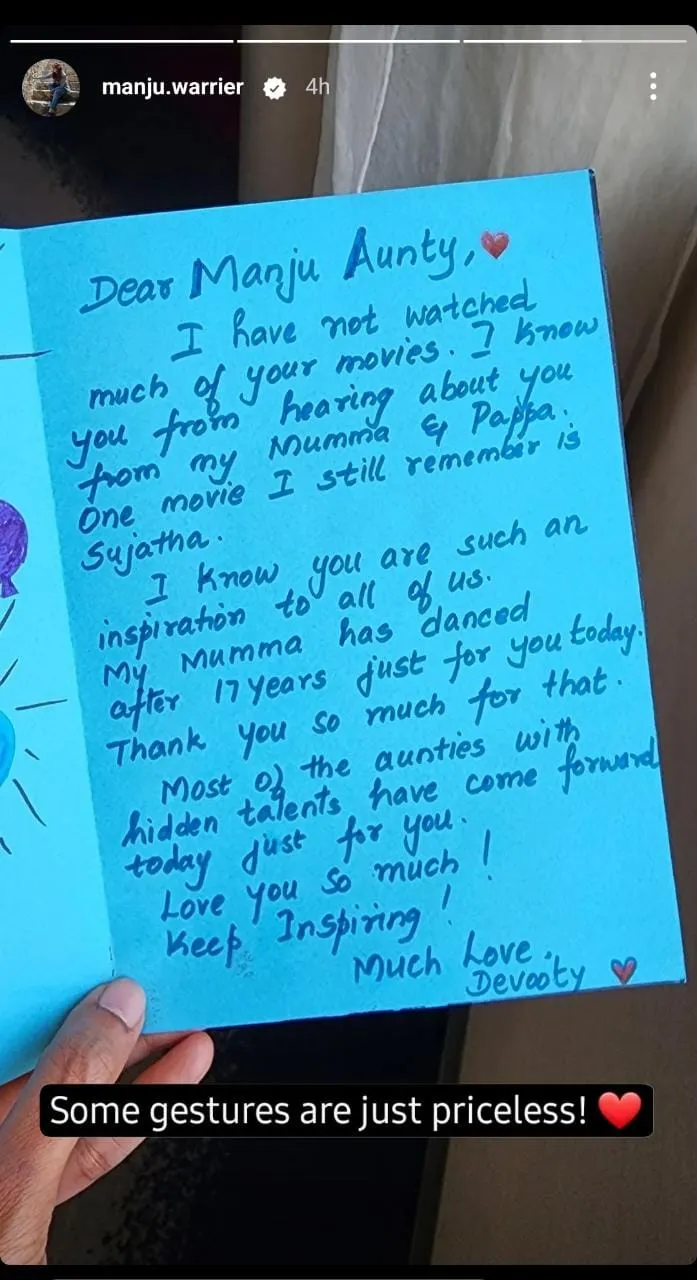 manju.warrier 4h
Dear Manju Aunty,
I have not watched
much of your movies. I know
you from hearing about you
from my Mumma & Pappa.
One movie I still remember is
Sujatha.
I know you are such an
inspiration to all of us.
My Mumma has danced
after 17 years just for you today.
Thank you so much for that.
Most of the aunties with
hidden talents have come forward
today just for you.
Love you so much!
Keep Inspiring!
Much Love.
Devooty
Some gestures are just priceless! ❤️